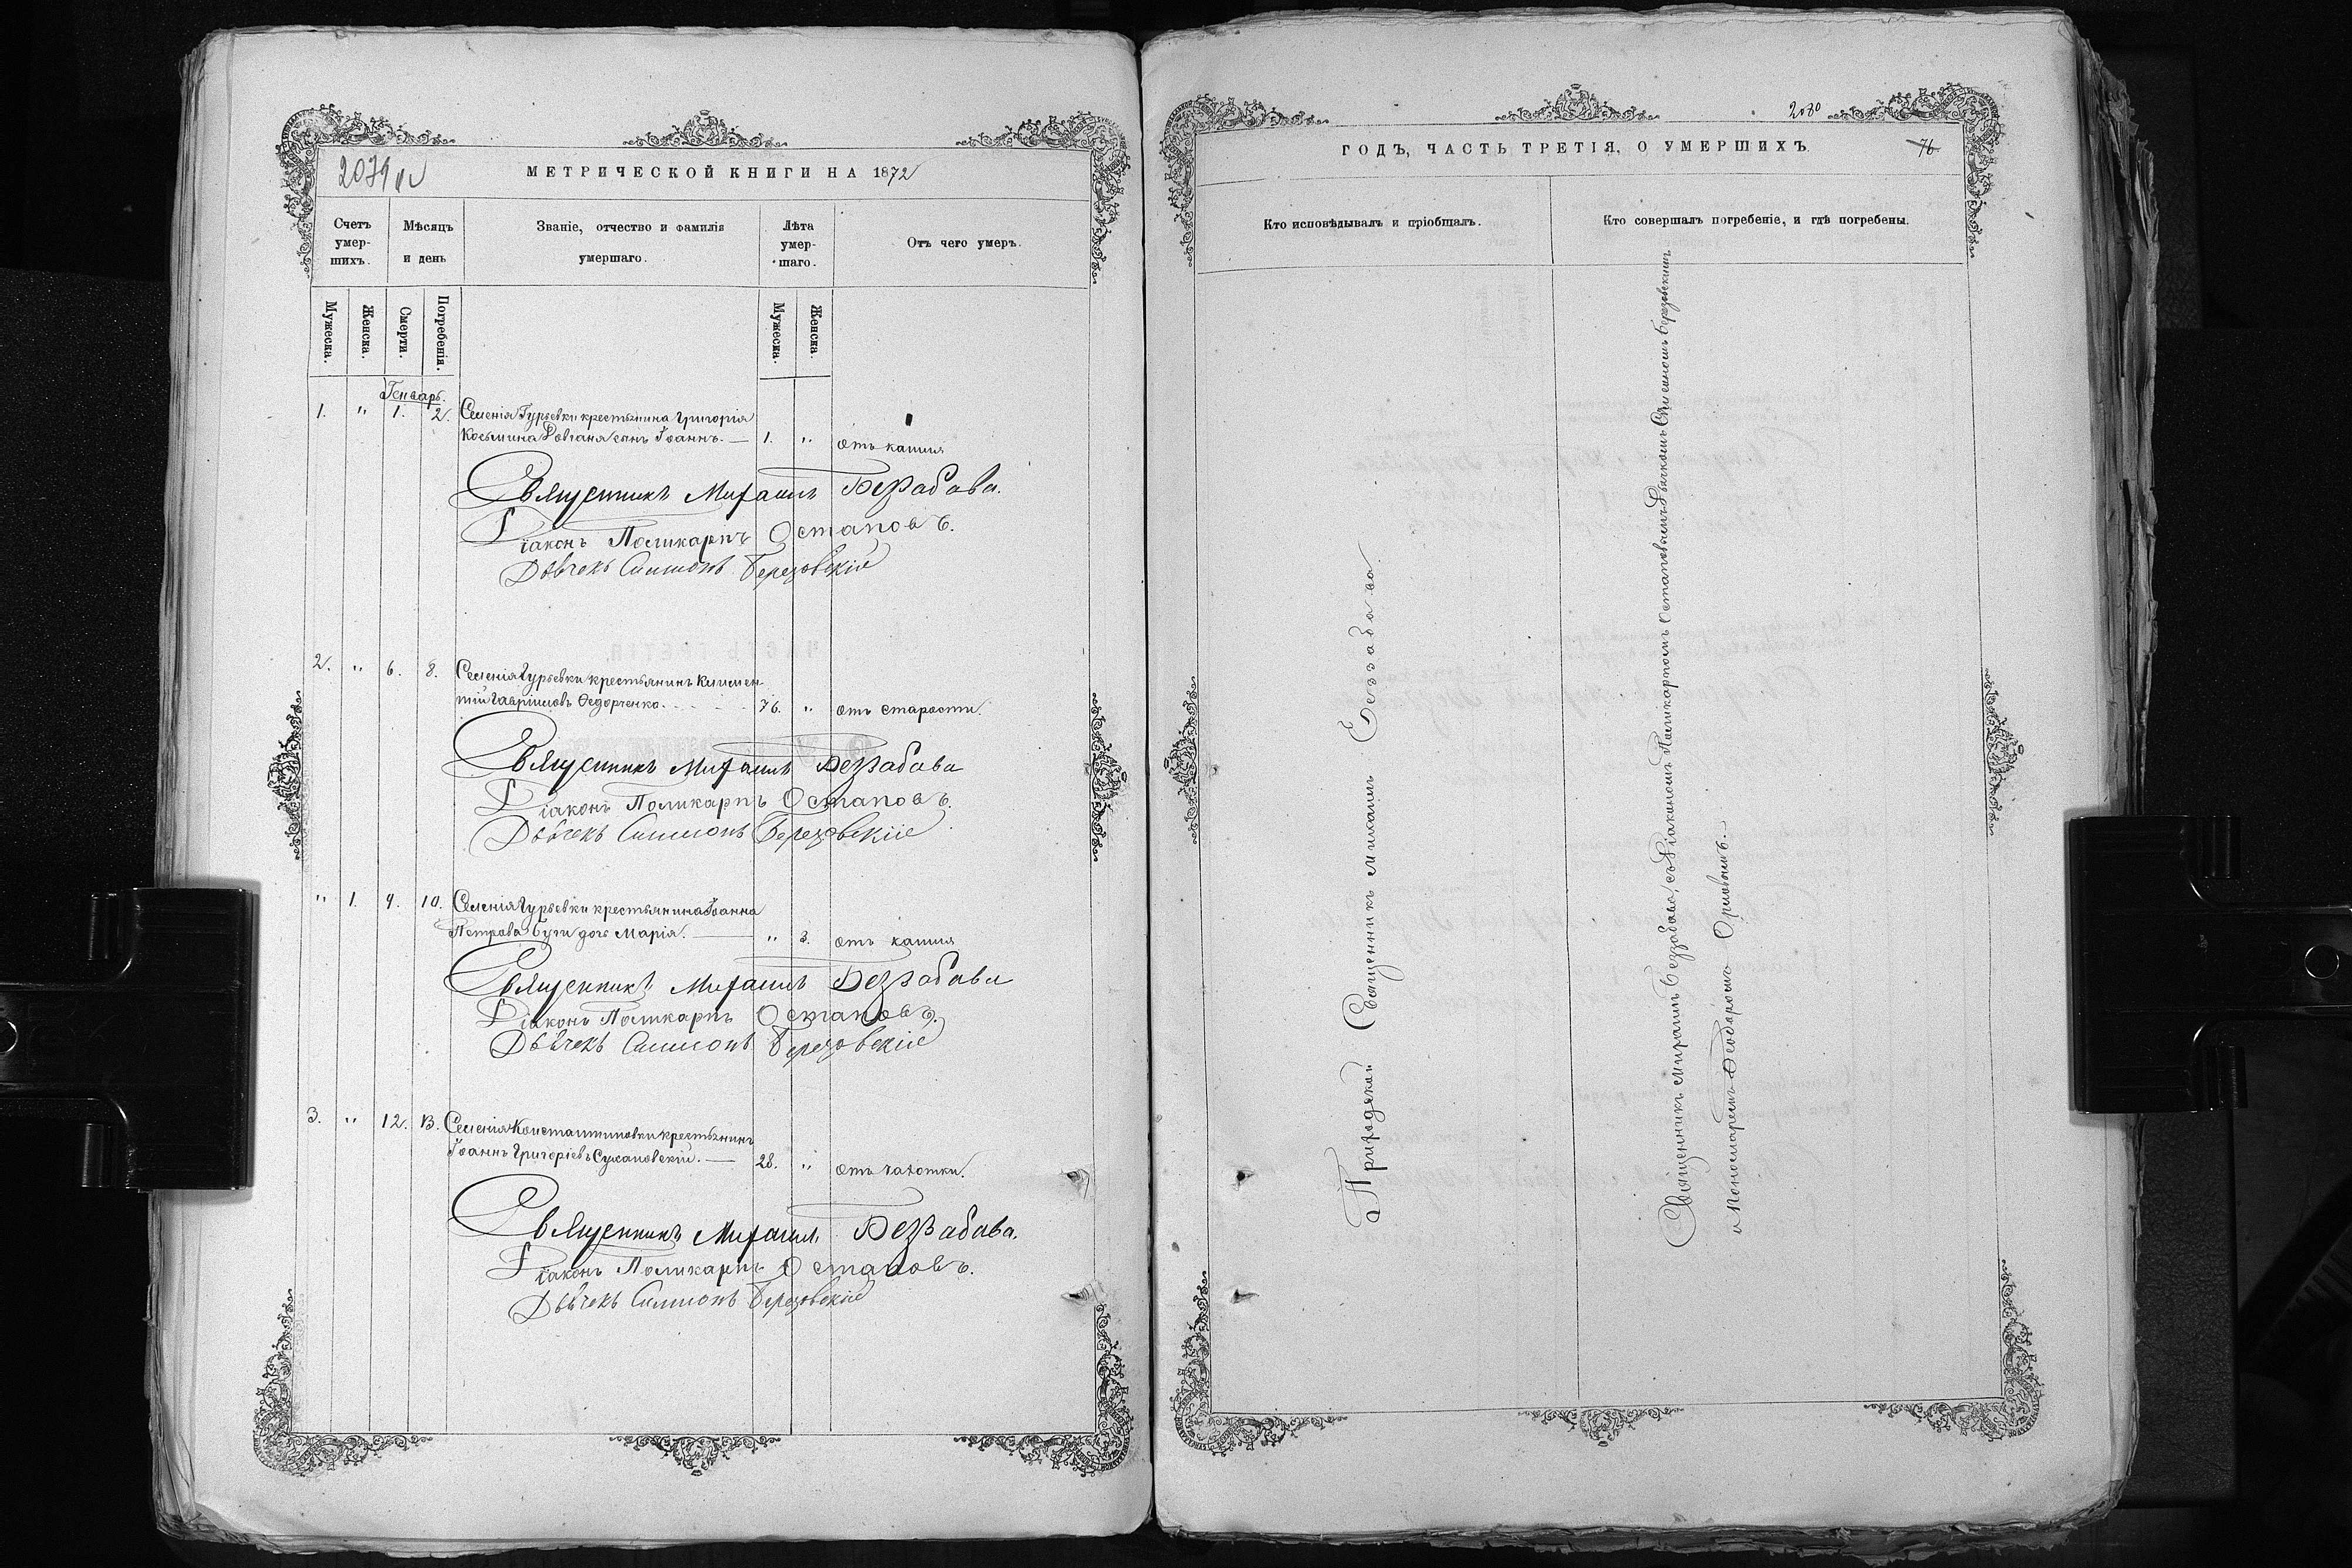 2079 об
МЕТРИЧЕСКОЙ КНИГИ НА 1872
Счетъ умер-шихъ.
Мѣсяцъ и день
Званіе, отчество и фамилія умершаго.
Лѣта умер-шаго.
Отъ чего умеръ.
Мужеска.
Женска.
Смерти.
Погребенія.
Мужеска.
Женска
Генварь.
1. " 1. 2. Селенія Гурьевки крестьянина Григорія
Косьмина сынъ Іоаннъ. — 1. " отъ кашля
Священникъ Михаилъ Беззабава.
Діаконъ Поликарпъ Остаповъ.
Дьячекъ Симеонъ Березовскій
2. " 6. 8. Селенія Гурьевки крестьянинъ Климен-
тій Гавріиловъ Ѳедорченко. 76. " отъ старости.
Священникъ Михаилъ Беззабава
Діаконъ Поликарпъ Остаповъ.
Дьячекъ Симеонъ Березовскій
" 1. 9. 10. Селенія Гурьевки крестьянина Іоанна
Петрова дочь Марія. — " 3. отъ кашля
Священникъ Михаилъ Беззабава
Діаконъ Поликарпъ Остаповъ.
Дьячекъ Симеонъ Березовскій
3. " 12. 13. Селенія Константиновки крестьянинъ
Іоаннъ Григоріевъ Сухановскій. — 28. " отъ чахотки.
Священникъ Михаилъ Беззабава.
Діаконъ Поликарпъ Остаповъ.
Дьячекъ Симеонъ Березовскій
2080
76
ГОДЪ, ЧАСТЬ ТРЕТІЯ, О УМЕРШИХЪ.
Кто исповѣдывалъ и пріобщалъ.
Кто совершалъ погребеніе, и гдѣ погребены.
Приходскій Священникъ Михаилъ Беззабава
Священникъ Михаилъ Беззабава, съ Діакономъ Поликарпомъ Остаповымъ Дьячкомъ Симеономъ Березовскимъ
и Пономаремъ Ѳеодоромъ